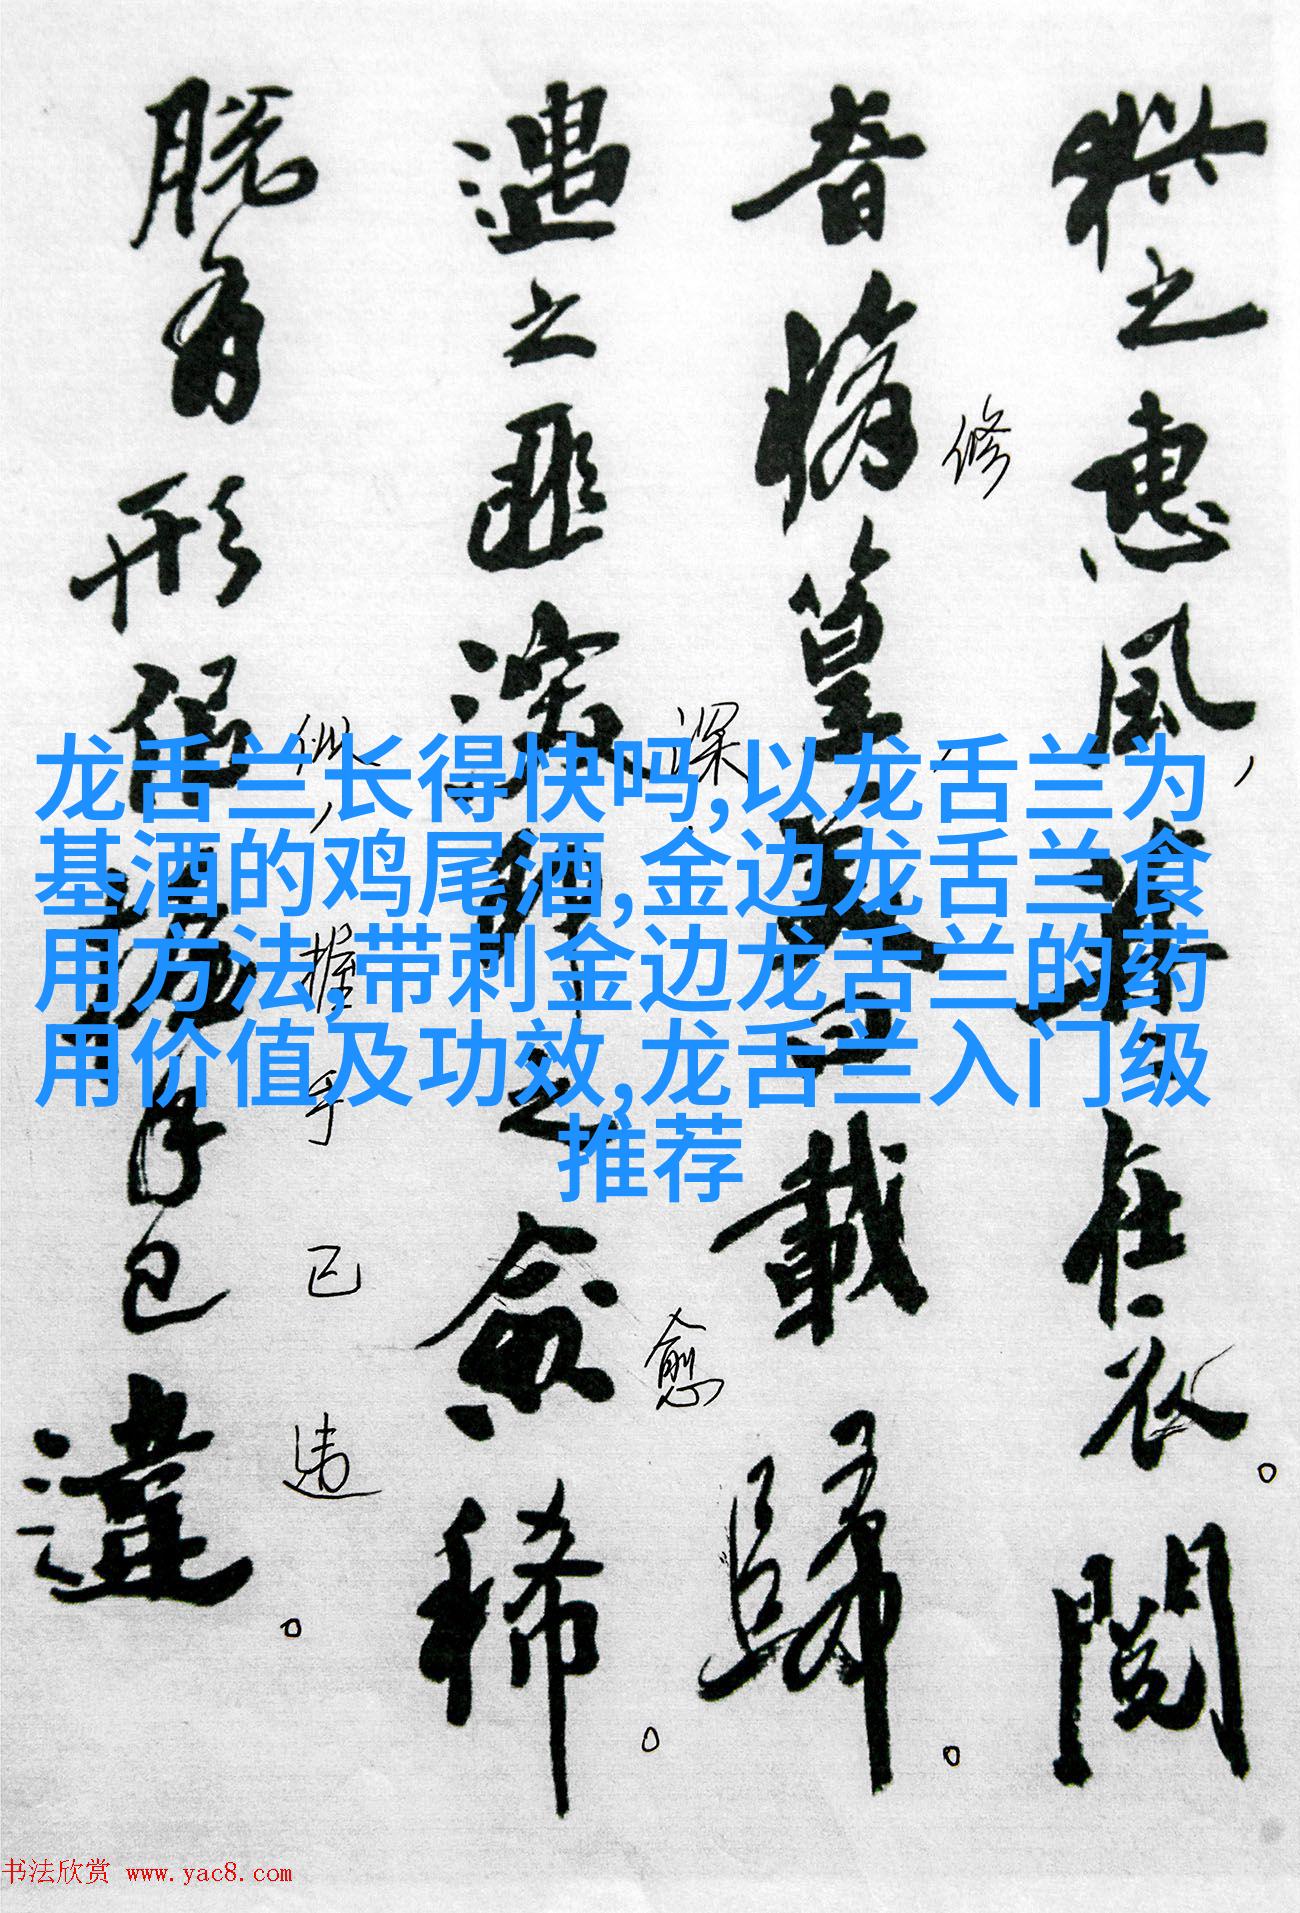 之惠風,在衣。閱
音脩篁,美曰載歸。
遇之匪深,即之愈稀。
脱有形似,握手已違。
修
深
愈
似
握
手
已
违
龙舌兰长得快吗,以龙舌兰为
基酒的鸡尾酒,金边龙舌兰食
用方法,带刺金边龙舌兰的药
用价值及功效,龙舌兰入门级
推荐
书法欣赏 www.yac8.com